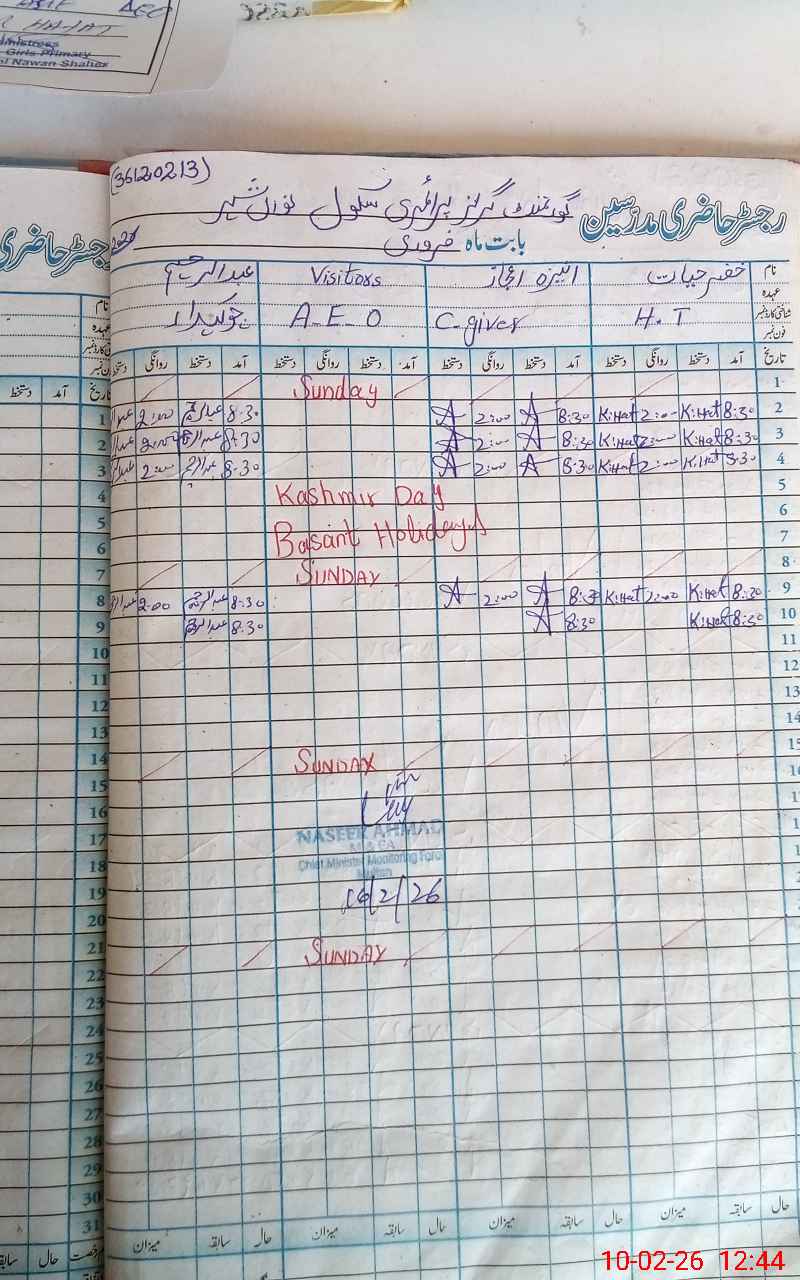 Girls Primary
Nawan Shaher
(36120213)
رجسٹر حاضری مدرسین
گورنمنٹ گرلز پرائمری سکول نواں شہر
بابت ماہ فروری
نام خضر حیات Visitors عبدالرحیم
عہدہ H.T C-giver A-E-O چوکیدار
تاریخ آمد دستخط روانگی دستخط آمد دستخط روانگی دستخط آمد دستخط روانگی دستخط آمد دستخط روانگی دستخط
1 Sunday
2 8:30 K:Hat 2:00 K:Hat 8:30 A 2:00 A 8:30 2:00
3 8:30 K:Hat 2:00 K:Hat 8:30 A 2:00 A 8:30 2:00
4 8:30 K:Hat 2:00 K:Hat 8:30 A 2:00 A 8:30 2:00
5 Kashmir Day
6 Basant Holidays
7
8 SUNDAY
9 8:30 K:Hat 2:00 K:Hat 8:30 A 2:00 A 8:30 2:00
10 8:30 K:Hat 8:30 A 8:30
11
12
13
14
15 SUNDAY
NASEER AHMAD
M & EA
Chief Minister Monitoring Force
Multan
16/2/26
SUNDAY
حال سابقہ میزان حال سابقہ میزان حال سابقہ میزان حال سابقہ میزان
رجسٹر حاضری
نام
عہدہ
شناختی کارڈ نمبر
فون نمبر
تاریخ آمد دستخط
1
2
3
4
5
6
7
8
9
10
11
12
13
14
15
16
17
18
19
20
21
22
23
24
25
26
27
28
29
30
31
رخصت حال سابقہ
10-02-26 12:44